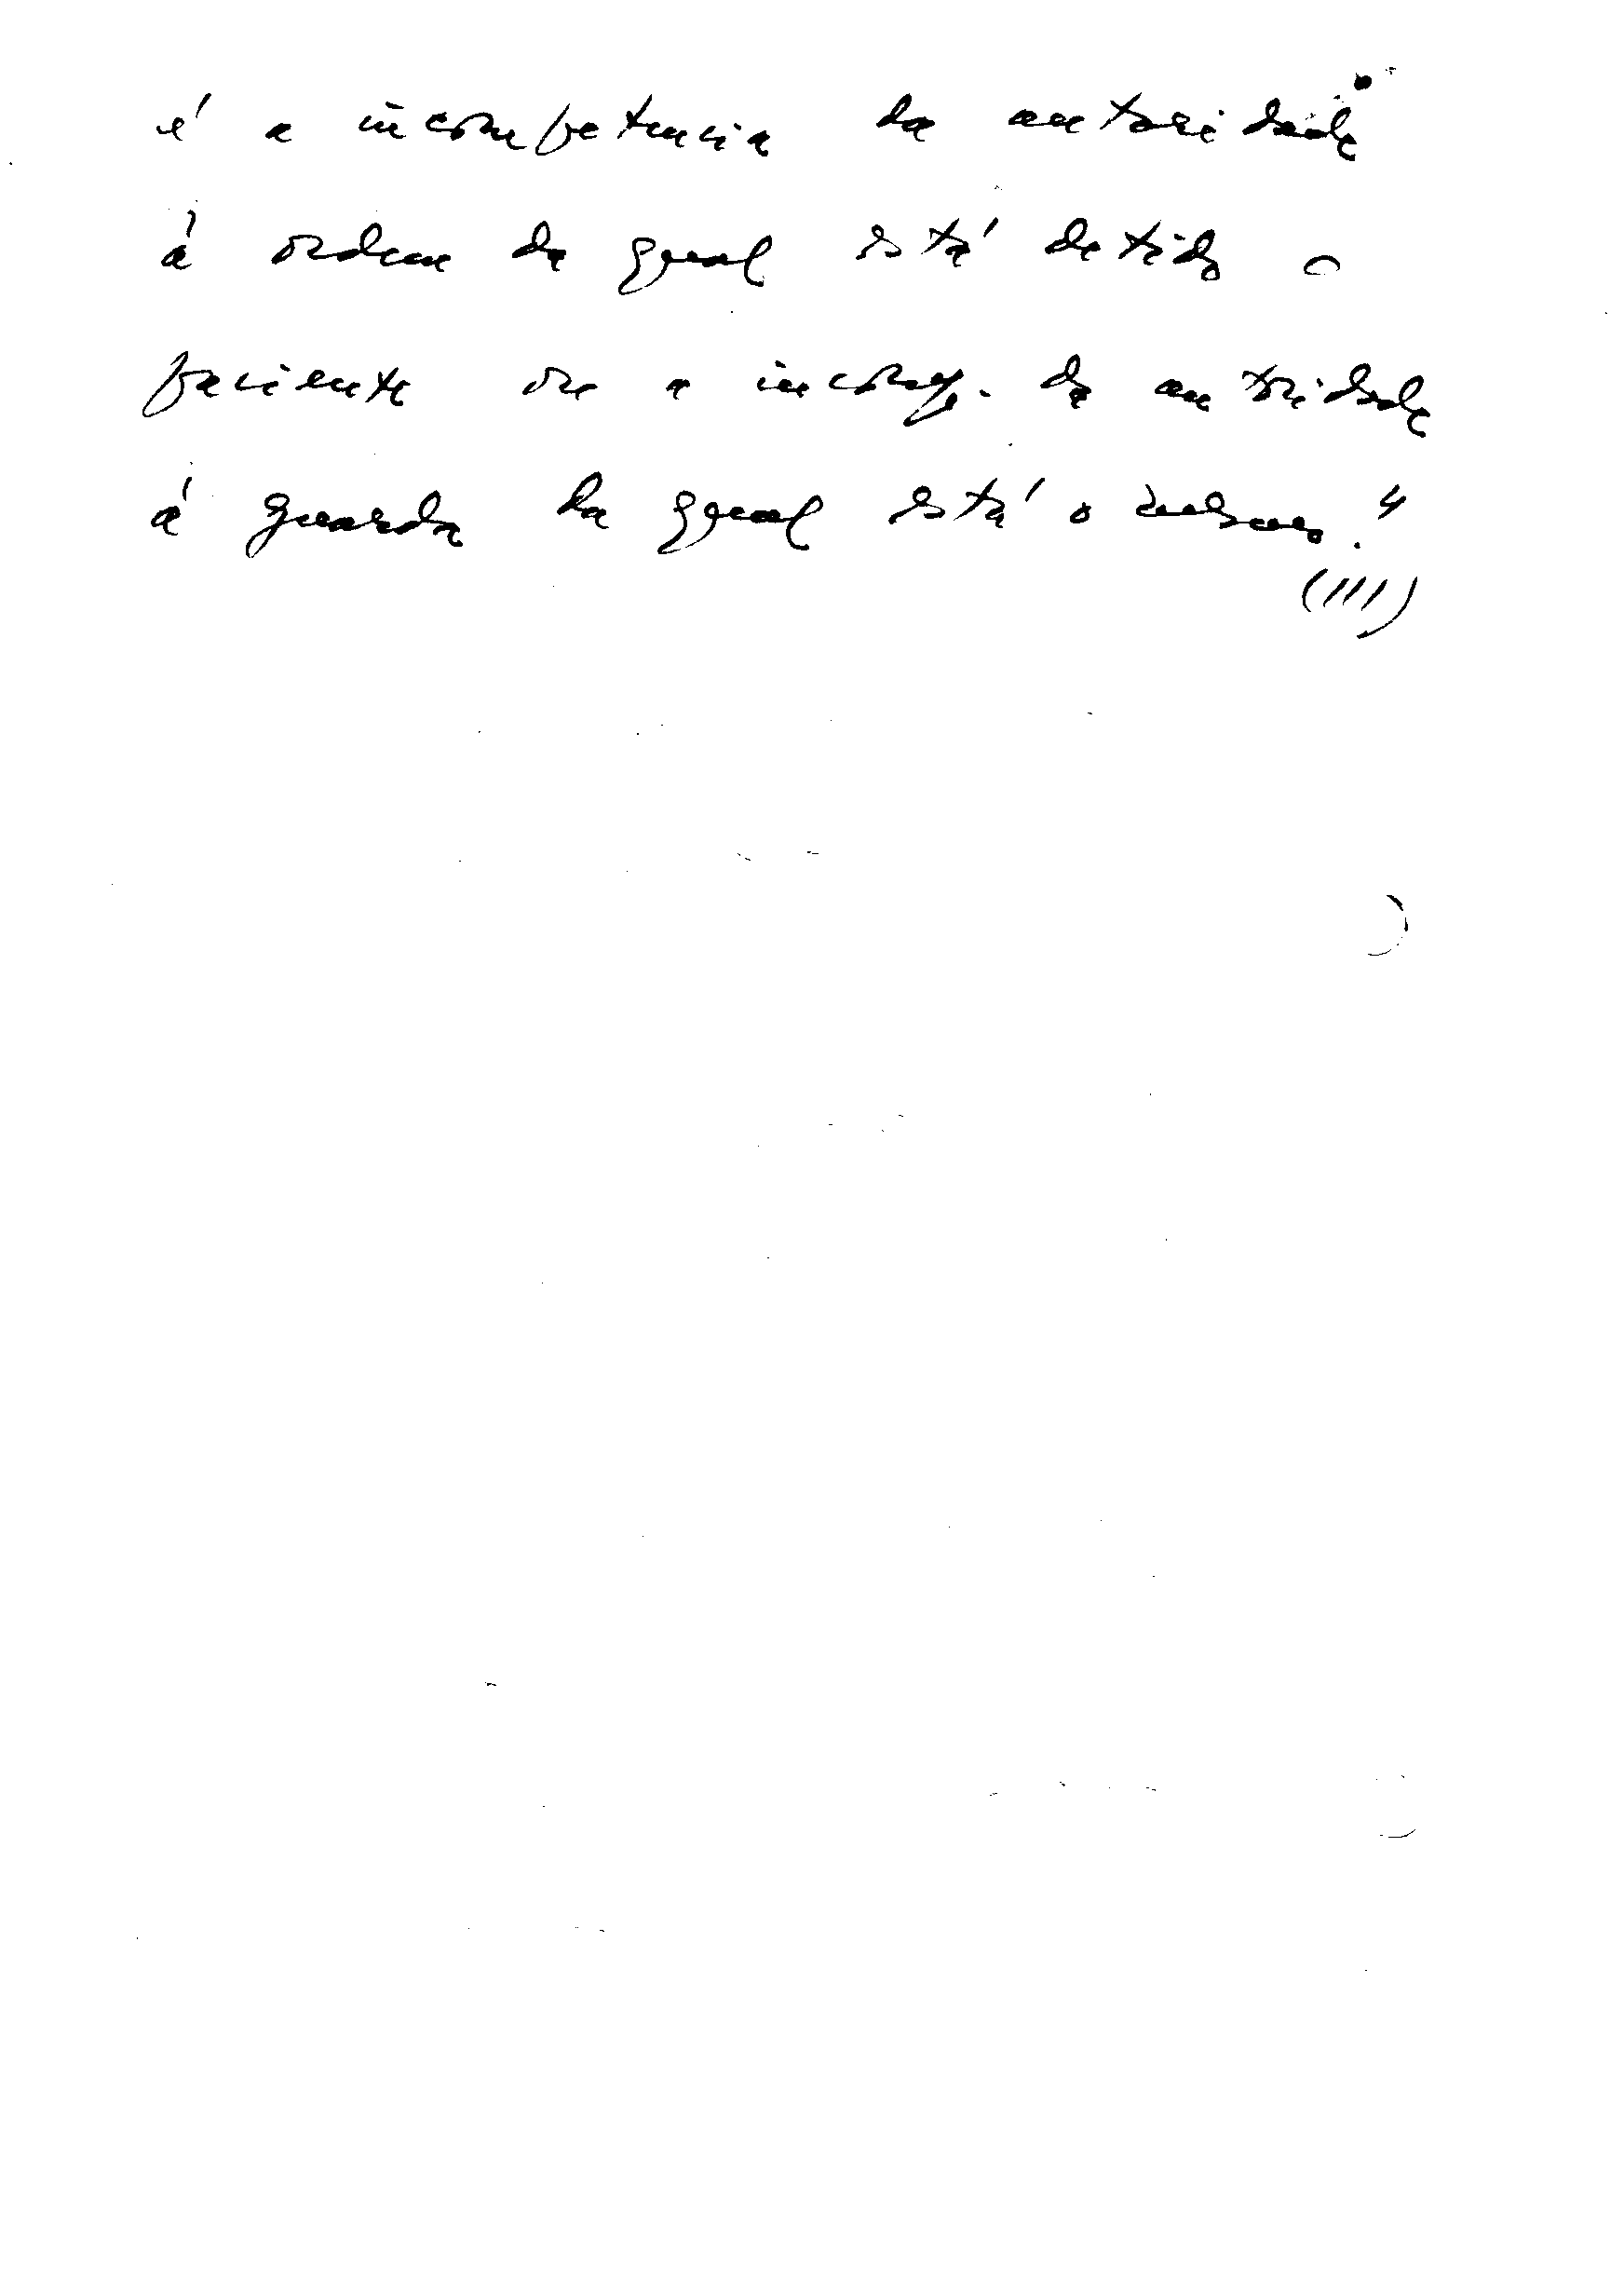 é a incompetencia da autoridade
á ordem da qual está detido o
paciente ou a incomp. da autoridade
á guarda da qual está o mesmo."
(III)